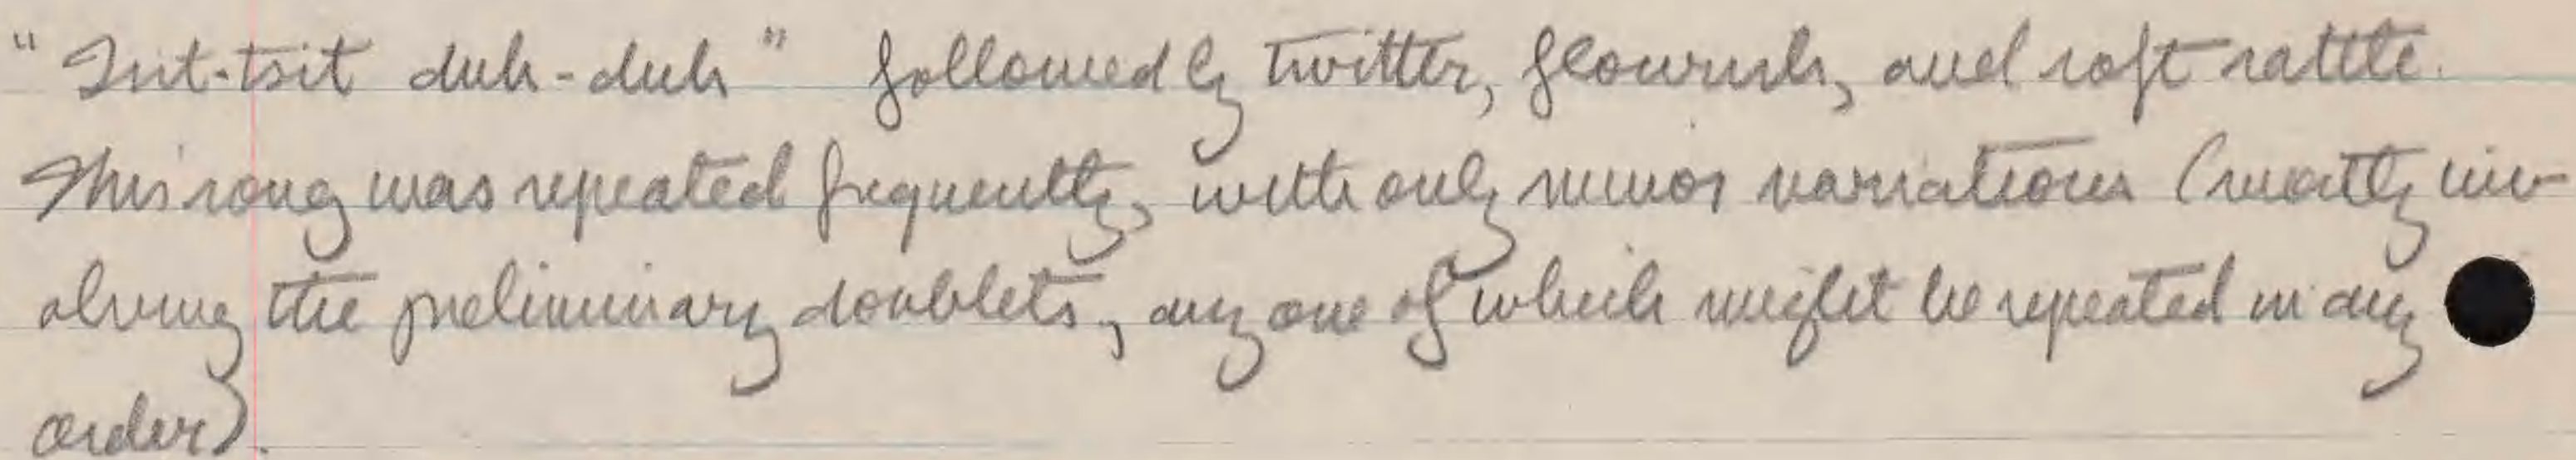 "Tsit-tsit duh-duh" followed by twitter, flourish, and soft rattle.
This song was repeated frequently, with only minor variations (mostly inv-
olving the preliminary doublets, any one of which might be repeated in any
order).